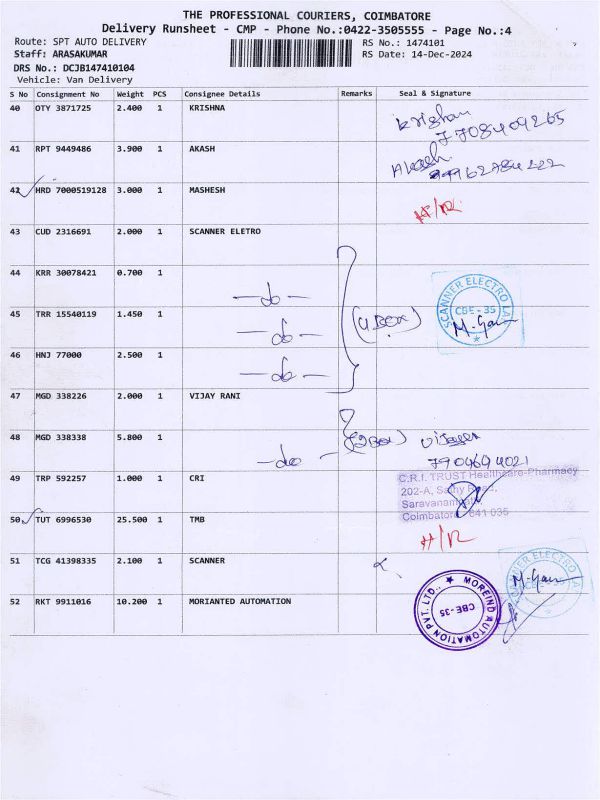 THE PROFESSIONAL COURIERS, COIMBATORE
Delivery Runsheet - CMP - Phone No.:0422-3505555 - Page No.:4
Route: SPT AUTO DELIVERY RS No.: 1474101
Staff: ARASAKUMAR RS Date: 14-Dec-2024
DRS No.: DCJB147410104
Vehicle: Van Delivery
S No Consignment No Weight PCS Consignee Details Remarks Seal & Signature
40 OTY 3871725 2.400 1 KRISHNA Krishan
7708409265
41 RPT 9449486 3.900 1 AKASH Akash
9962784222
42 HRD 7000519128 3.000 1 MASHESH H/R
43 CUD 2316691 2.000 1 SCANNER ELETRO
44 KRR 30078421 0.700 1 -do-
SCANNER ELECTRO LA
CBE-35
45 TRR 15540119 1.450 1 -do- (4 Box) M.Gau
46 HNJ 77000 2.500 1 -do-
47 MGD 338226 2.000 1 VIJAY RANI
48 MGD 338338 5.800 1 -do- (2 Box)
7904694021
49 TRP 592257 1.000 1 CRI C.R.I. TRUST Healthcare-Pharmacy
202-A, Sathy Road,
Saravanampatti,
Coimbatore - 641 035
50 TUT 6996530 25.500 1 TMB H/R
51 TCG 41398335 2.100 1 SCANNER
ELECTRO LA
M.Gau
52 RKT 9911016 10.200 1 MORIANTED AUTOMATION
MOREIND AUTOMATION PVT. LTD.,
CBE-35